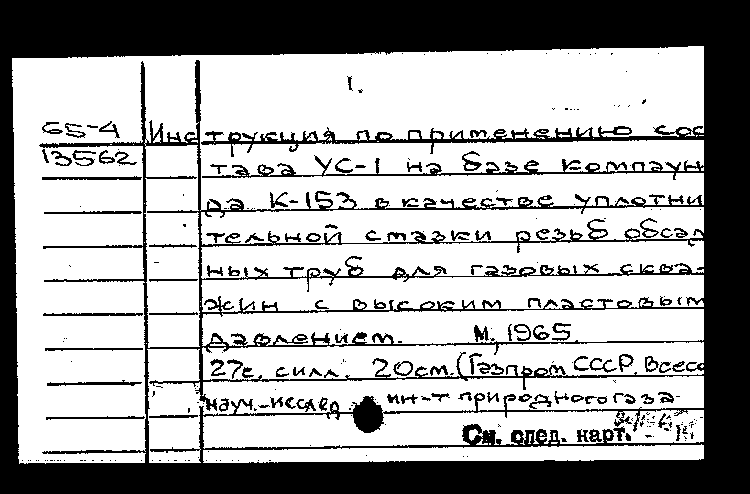 1.
65-4 Инструкция по применению сос
13562 тава УС-1 на базе компаун
да К-153 в качестве уплотни
тельной смазки резьб обсад
ных труб для газовых сква-
жин с высоким пластовым
давлением. М., 1965.
27с. с илл. 20см. (Газпром СССР. Всесо
науч.-исслед ин-т природного газа
См. след. карт.